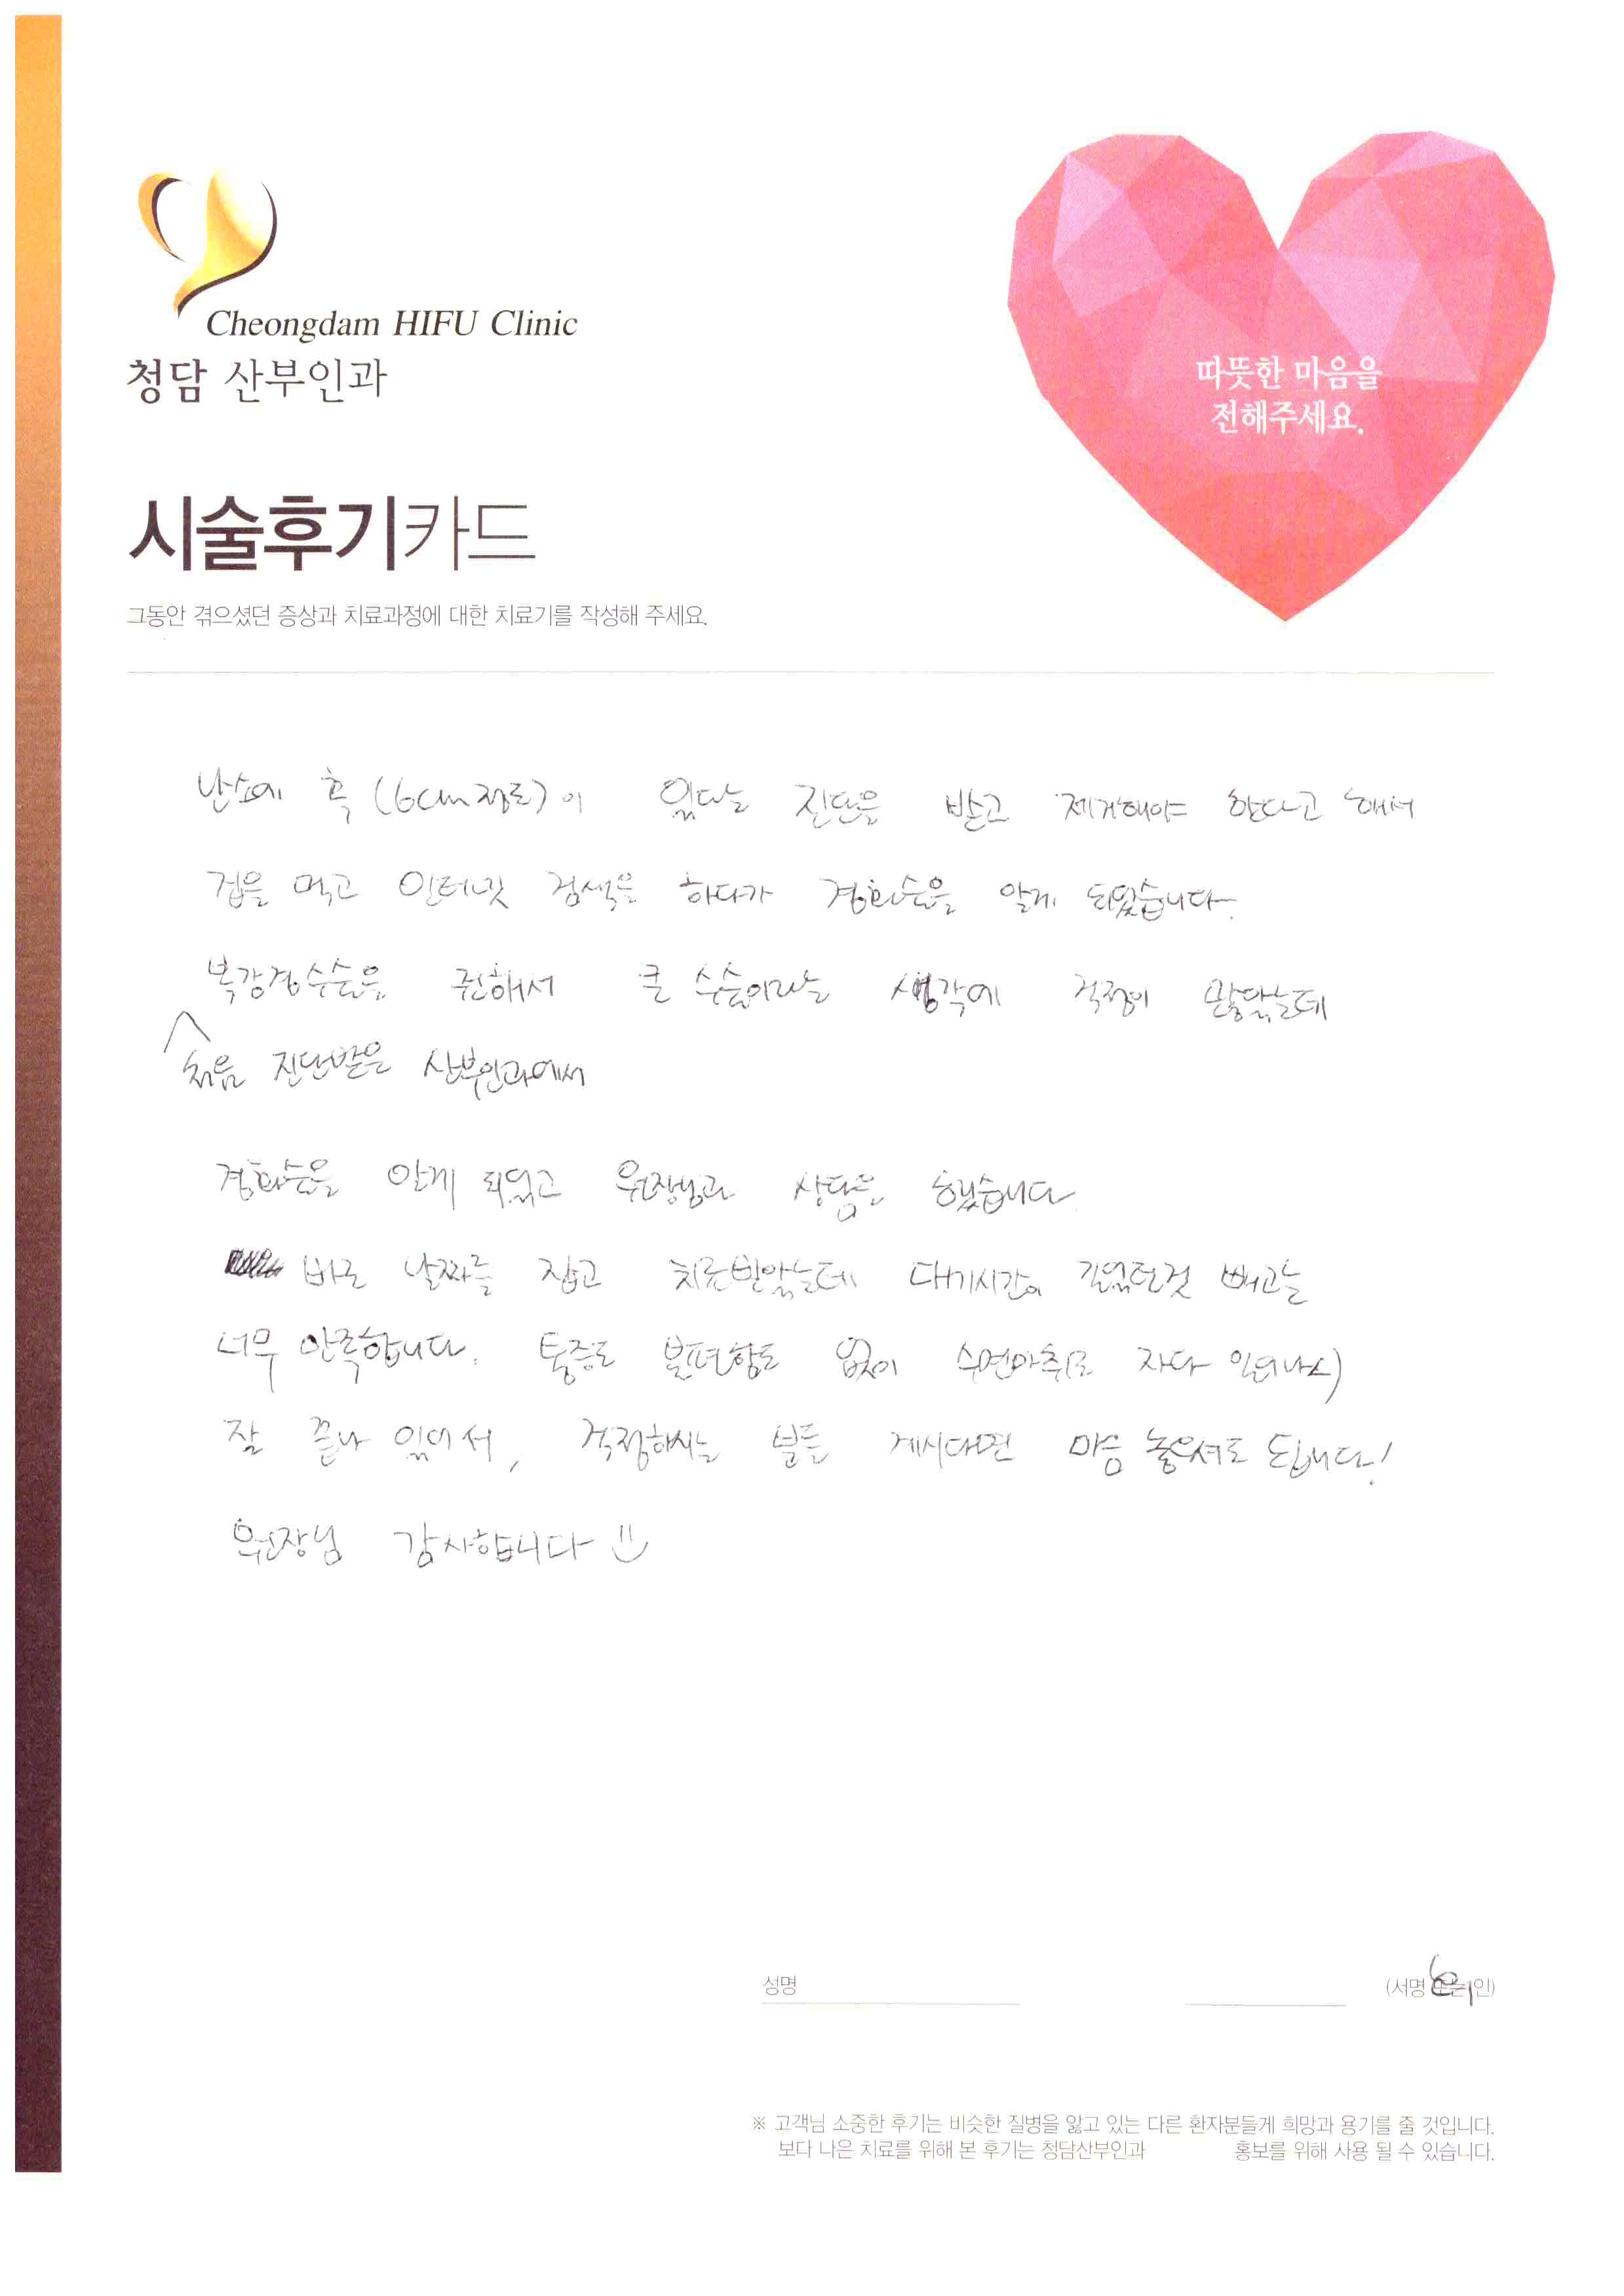 Cheongdam HIFU Clinic
청담 산부인과
따뜻한 마음을
전해주세요.
시술후기카드
그동안 겪으셨던 증상과 치료과정에 대한 치료기를 작성해 주세요.
난소에 혹 (6cm정도)이 있다는 진단을 받고 제거해야 한다고 해서
겁을 먹고 인터넷 검색을 하다가 경화술을 알게 되었습니다.
복강경수술을 권해서 큰 수술이라는 생각에 걱정이 많았는데
처음 진단받은 산부인과에서
경화술을 알게 되었고 원장님과 상담을 했습니다
바로 날짜를 잡고 치료받았는데 대기시간이 길었던것 빼고는
너무 만족합니다. 통증도 불편함도 없이 수면마취로 자다 일어나니)
잘 끝나 있어서, 걱정하시는 분들 계시다면 마음 놓으셔도 됩니다!
원장님 감사합니다
성명
(서명 또는 인)
※ 고객님 소중한 후기는 비슷한 질병을 앓고 있는 다른 환자분들게 희망과 용기를 줄 것입니다.
보다 나은 치료를 위해 본 후기는 청담산부인과 홍보를 위해 사용 될 수 있습니다.